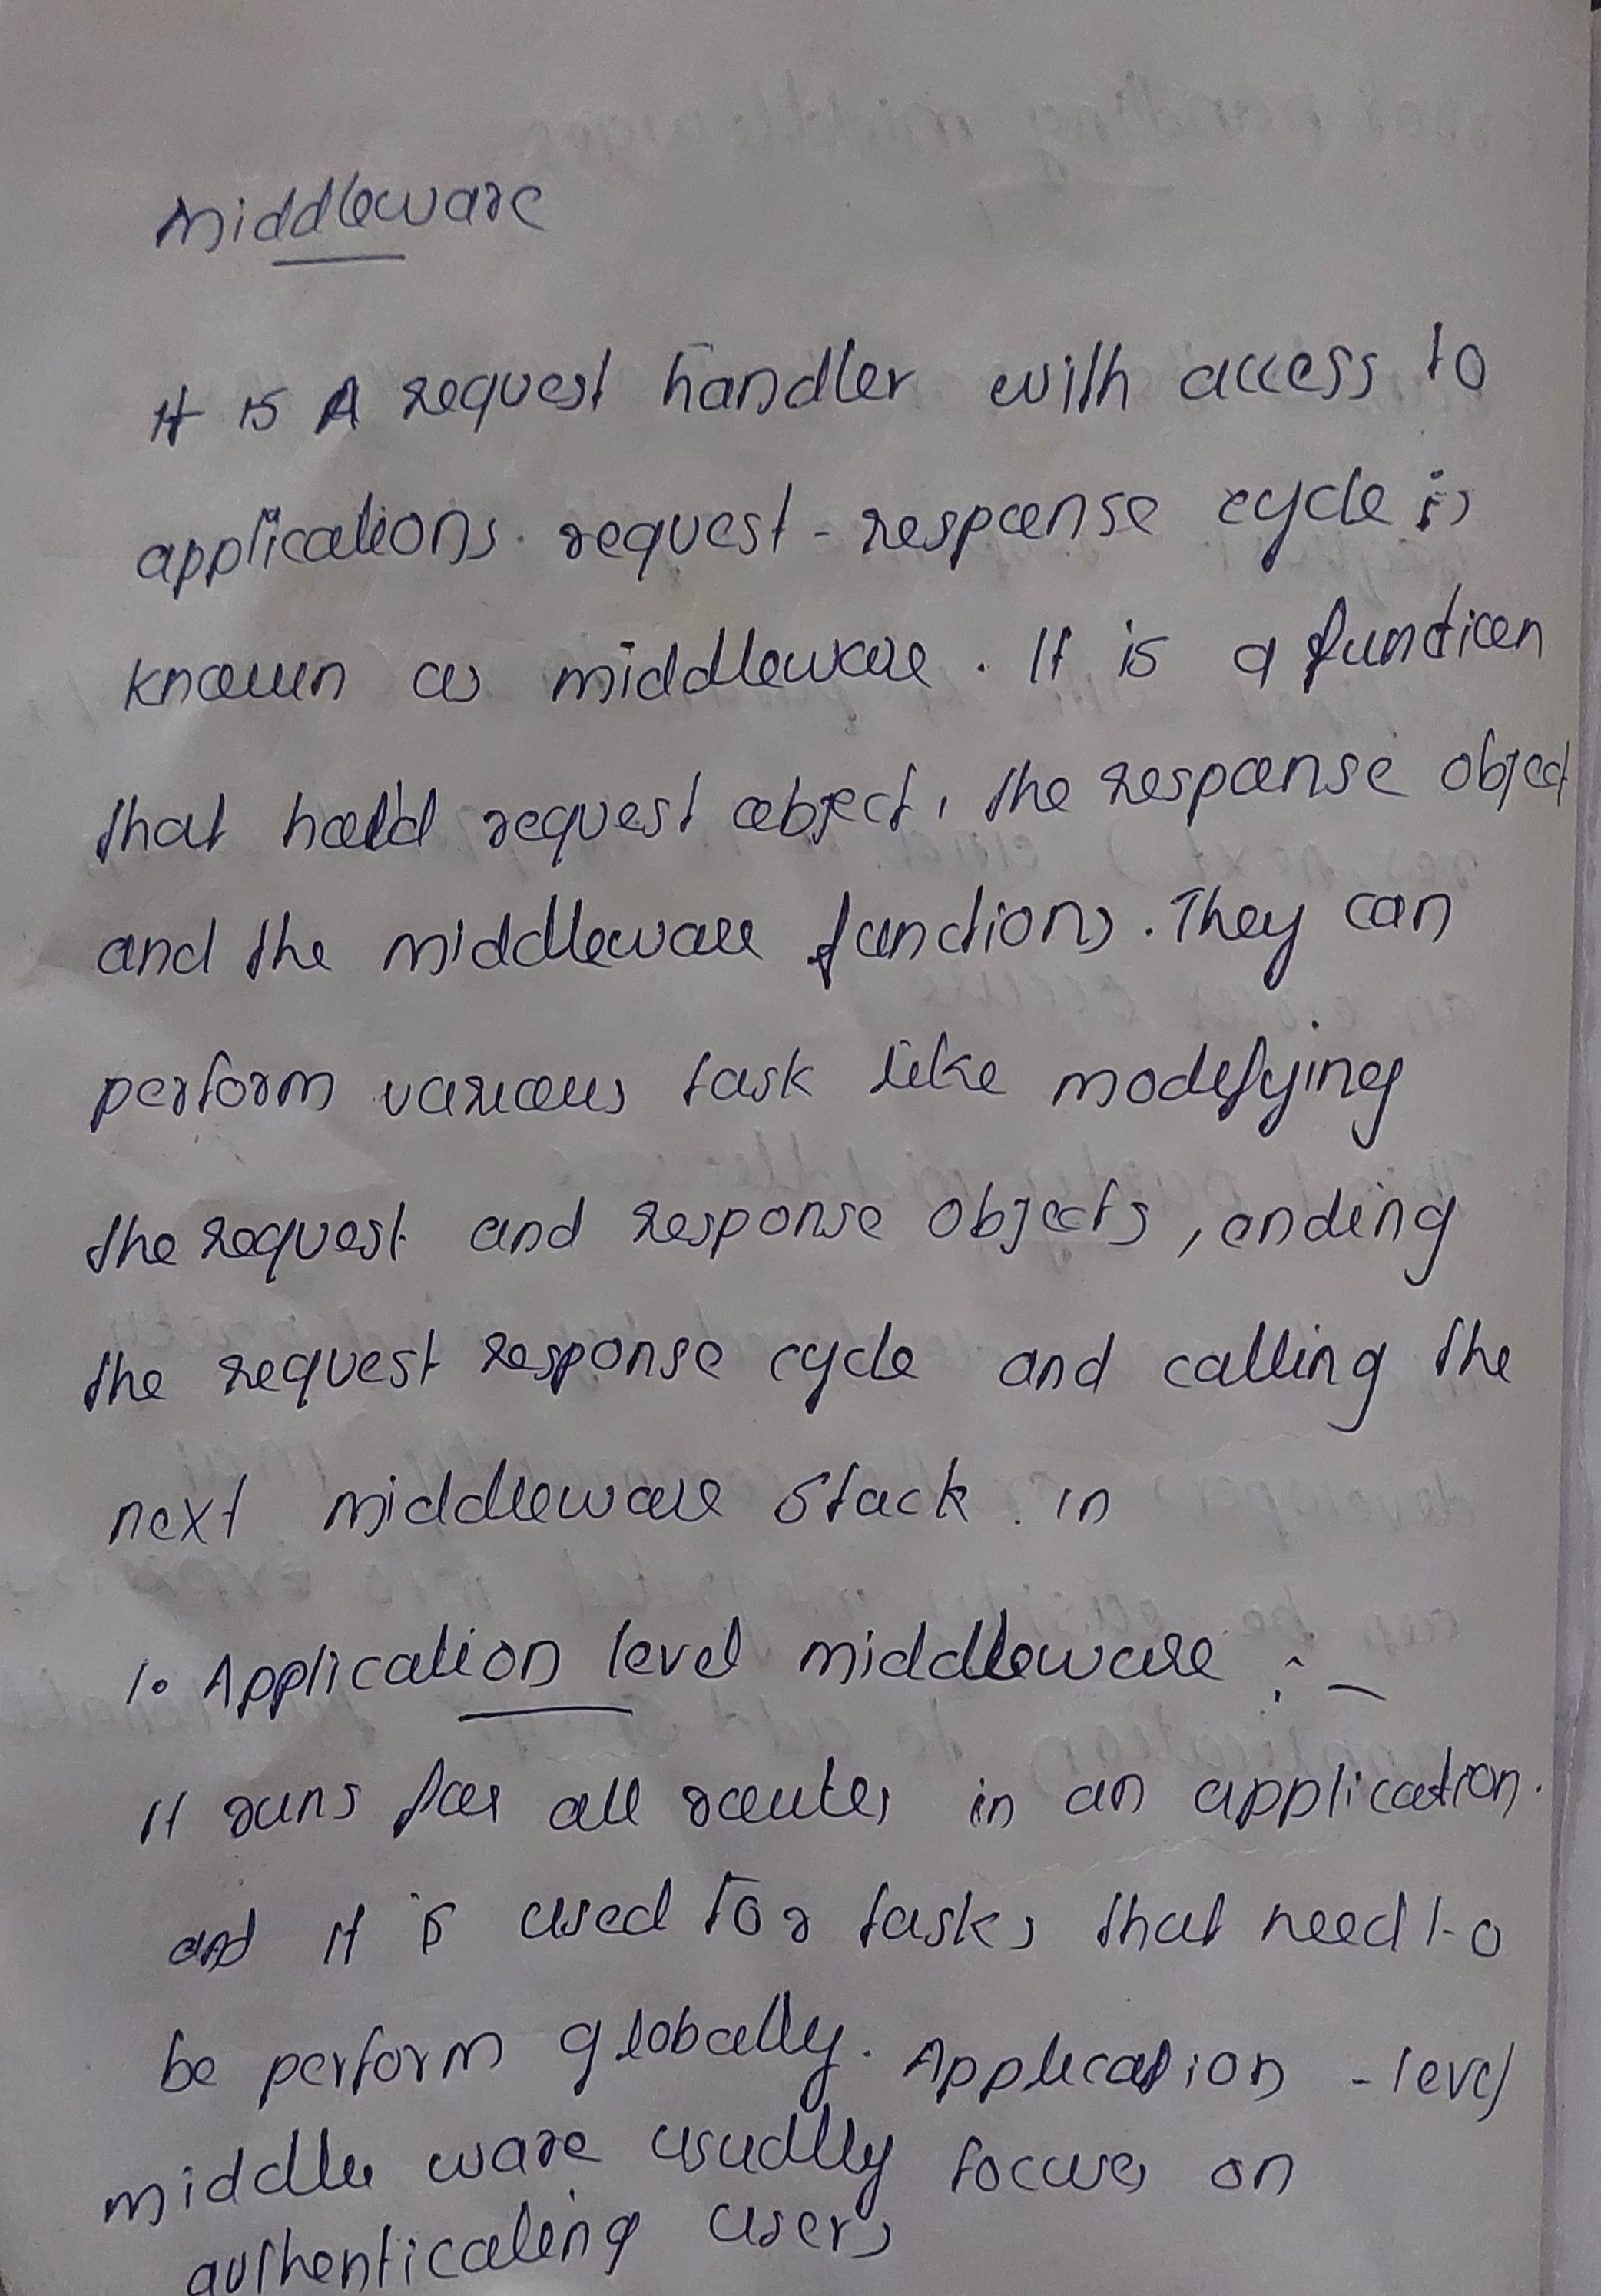 Middleware
It is A request handler with access to
applications. request - response cycle is
known as middleware. It is a function
that hold request object, the response object
and the middleware functions. They can
perform various task like modifying
the request and response objects, ending
the request response cycle and calling the
next middleware stack. in
1. Application level middleware :-
It runs for all routes in an application.
and it is used for tasks that need to
be perform globally. Application - level
middle ware usually focuses on
authenticating users